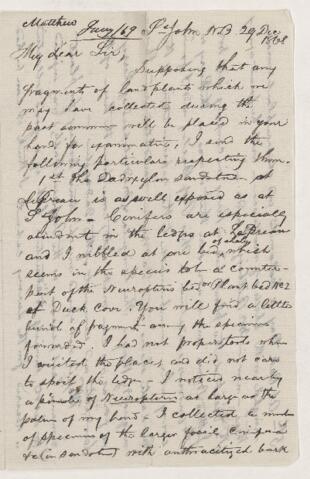 Matthew Jany/69 St John N.B. 29 Dec 1868
My dear Sir,
Supposing that any
fragments of land plants which we
may have collected during the
past summer will be placed in your
hands for examination, I send the
following particulars respecting them.
1st The Dadoxylon sandstone at
LePreau is as well exposed as at
St John - Conifers are especially
abundant in the ledges at LePreau
and I nibbled at one bed of shaly which
seems in the species to be a counter-
part of the Neuropteris bed or Plant bed No 2
at Duck Cove. You will find a little
of fragments among the specimens
forwarded. I had not proper tools when
I visited the place, and did not care
to spoil the ledge - I noticed nearly
a pinnule of Neuropteris as large as the
palm of my hand - I collected a number
of specimens of the larger fossil
with anthracitized bark